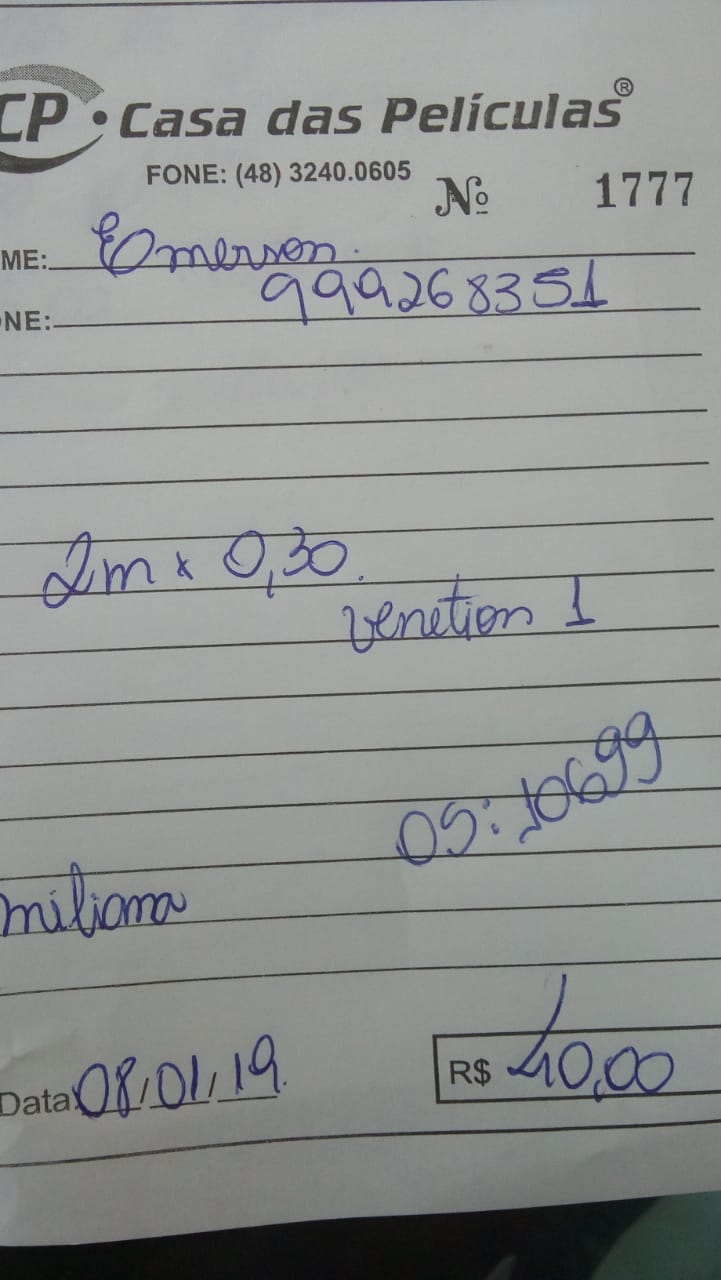 CP • Casa das Películas®
FONE: (48) 3240.0605
Nº 1777
ME: Emerson.
ONE: 999268351
2m x 0,30.
Venetion 1
OS: 10699
miliana
Data: 08/01/19.
R$ 40,00